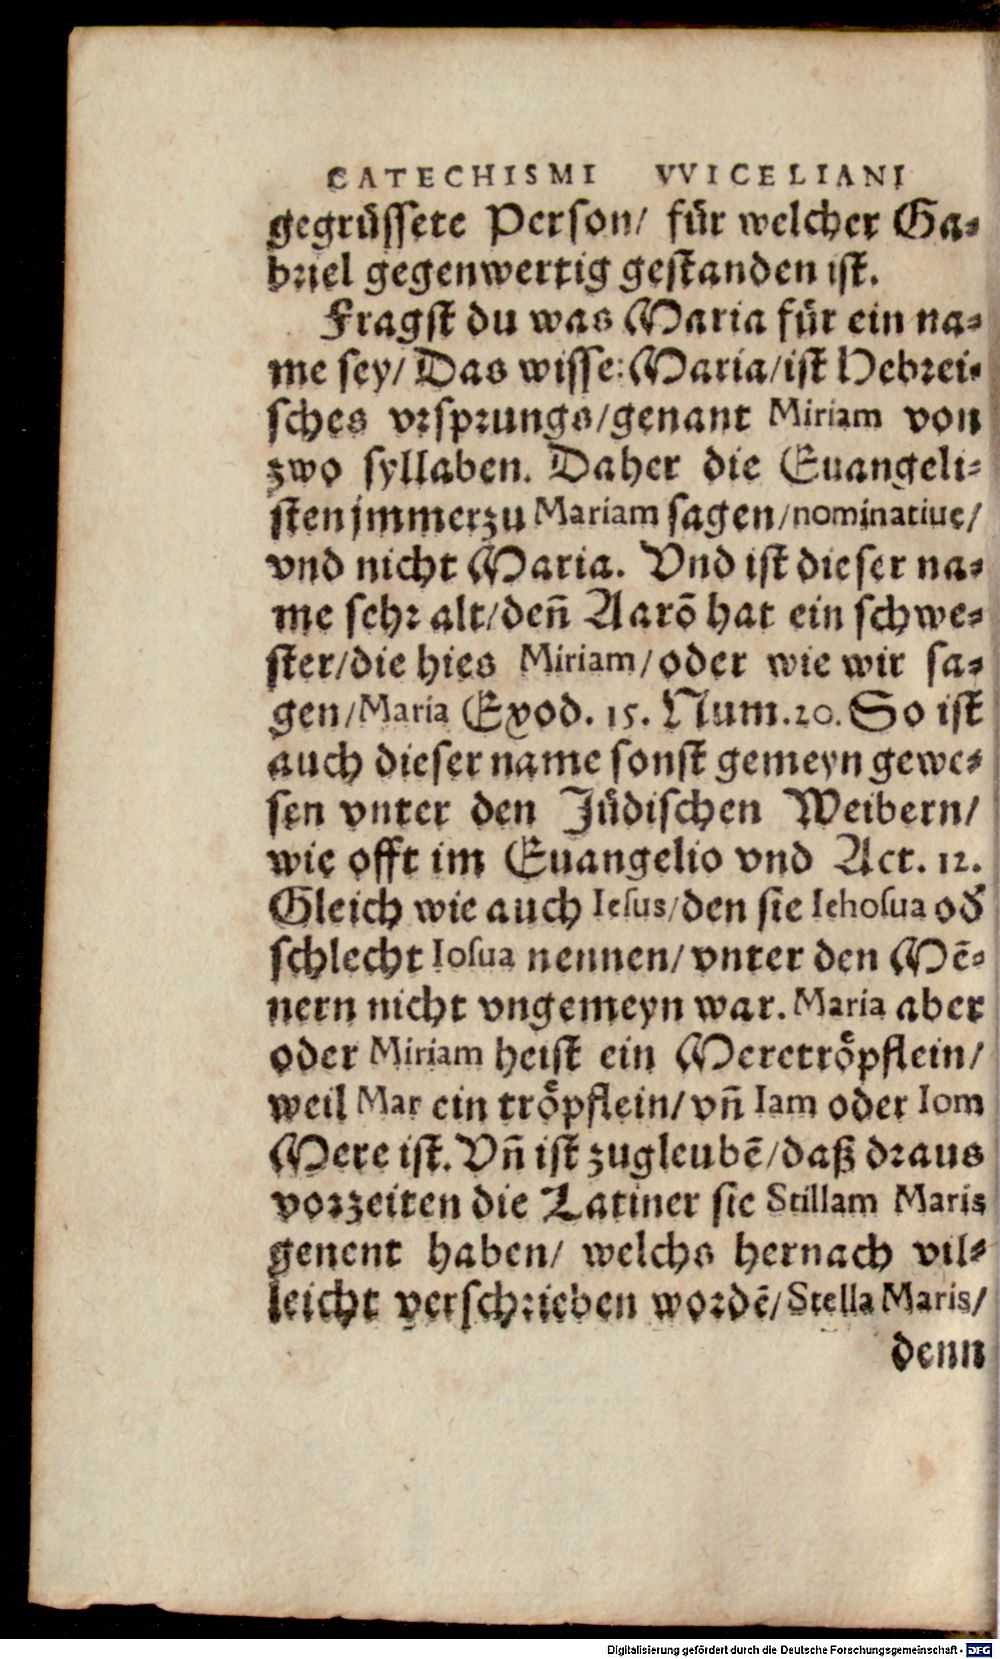 CATECHISMI VVICELIANI
gegrüssete Person/ für welcher Ga-
briel gegenwertig gestanden ist.
Fragst du was Maria für ein na-
me sey/ Das wisse: Maria/ist Hebrei-
sches vrsprungs/genant Miriam von
zwo syllaben. Daher die Euangeli-
sten jmmerzu Mariam sagen/nominatiue/
vnd nicht Maria. Vnd ist dieser na-
me sehr alt/deñ Aarõ hat ein schwe-
ster/die hies Miriam/oder wie wir sa-
gen/Maria Exod. 15. Num.20. So ist
auch dieser name sonst gemeyn gewe-
sen vnter den Jüdischen Weibern/
wie offt im Euangelio vnd Act. 12.
Gleich wie auch Iesus/den sie Iehosua od̕
schlecht Iosua nennen/vnter den Mẽ-
nern nicht vngemeyn war. Maria aber
oder Miriam heist ein Meretröpflein/
weil Mar ein tröpflein/vñ Iam oder Iom
Mere ist. Vñ ist zugleubẽ/daß draus
vorzeiten die Latiner sie Stillam Maris
genent haben/ welchs hernach vil-
leicht verschrieben wordẽ/Stella Maris/
denn
Digitalisierung gefördert durch die Deutsche Forschungsgemeinschaft - DFG